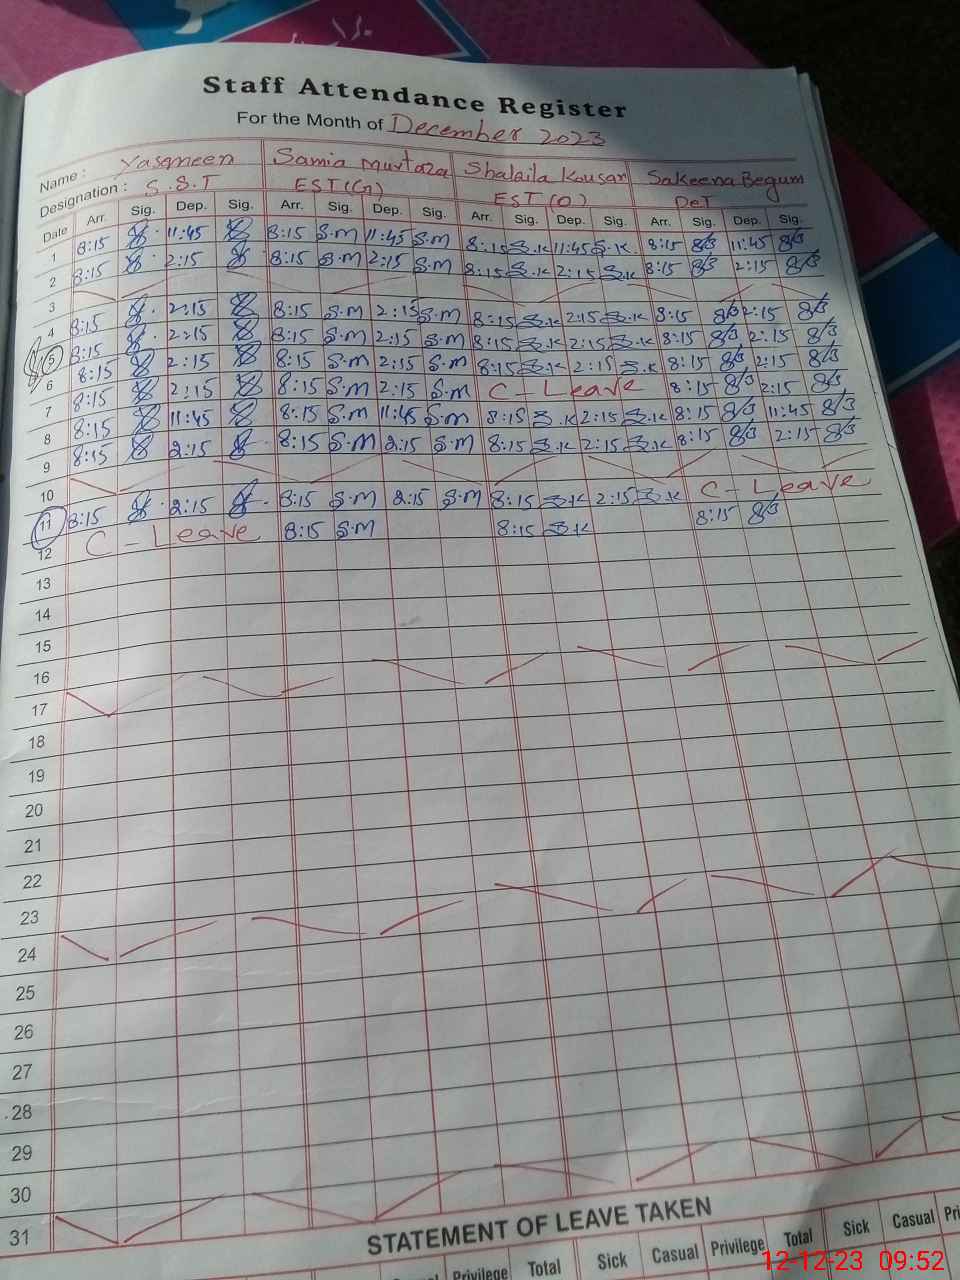 Staff Attendance Register
For the Month of December 2023
Name : Yasmeen Samia Murtaza Shalaila Kousar Sakeena Begum
Designation : S.S.T EST(G) EST(O) DeT
Date Arr. Sig. Dep. Sig. Arr. Sig. Dep. Sig. Arr. Sig. Dep. Sig. Arr. Sig. Dep. Sig.
1 8:15 11:45 8:15 S.M 11:45 S.M 8:15 S.K 11:45 S.K 8:15 11:45
2 8:15 2:15 8:15 S.M 2:15 S.M 8:15 S.K 2:15 S.K 8:15 2:15
3
4 8:15 2:15 8:15 S.M 2:15 S.M 8:15 S.K 2:15 S.K 8:15 2:15
5 8:15 2:15 8:15 S.M 2:15 S.M 8:15 S.K 2:15 S.K 8:15 2:15
6 8:15 2:15 8:15 S.M 2:15 S.M 8:15 S.K 2:15 S.K 8:15 2:15
7 8:15 2:15 8:15 S.M 2:15 S.M C-Leave 8:15 2:15
8 8:15 11:45 8:15 S.M 11:45 S.M 8:15 S.K 2:15 S.K 8:15 11:45
9 8:15 2:15 8:15 S.M 2:15 S.M 8:15 S.K 2:15 S.K 8:15 2:15
10
11 8:15 2:15 8:15 S.M 2:15 S.M 8:15 S.K 2:15 S.K C-Leave
12 C-Leave 8:15 S.M 8:15 S.K 8:15
13
14
15
16
17
18
19
20
21
22
23
24
25
26
27
28
29
30
31
STATEMENT OF LEAVE TAKEN
Casual Privilege Total Sick Casual Privilege Total Sick Casual Pri
12-12-23 09:52